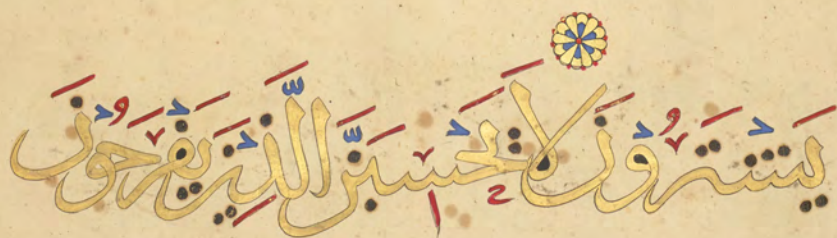 يَشْتَرُونَ ۝ لَا تَحْسِبَنَّ الَّذِينَ يَفْرَحُونَ